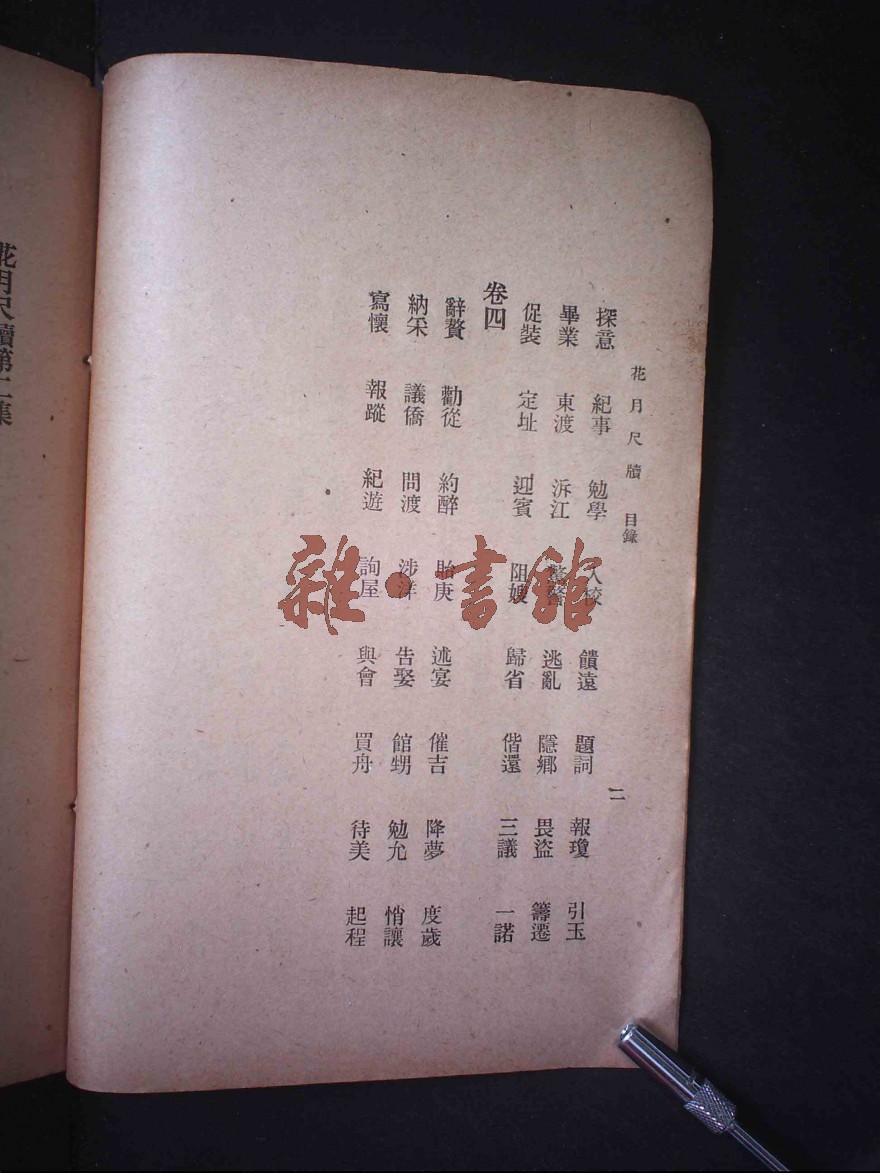 花月尺牘 目錄 二
探意 紀事 勉學 入校 饋遠 題詞 報瓊 引玉
畢業 東渡 泝江 逃亂 隱鄉 畏盜 籌遷
促裝 定址 迎賓 阻嫂 歸省 偕還 三議 一諾
卷四
辭贅 勸從 約醉 貽庚 述宴 催吉 降夢 度歲
納采 議僑 問渡 涉洋 告娶 館甥 勉允 悄讓
寫懷 報蹤 紀遊 詢屋 與會 買舟 待美 起程
花月尺牘第二集
雜·書館